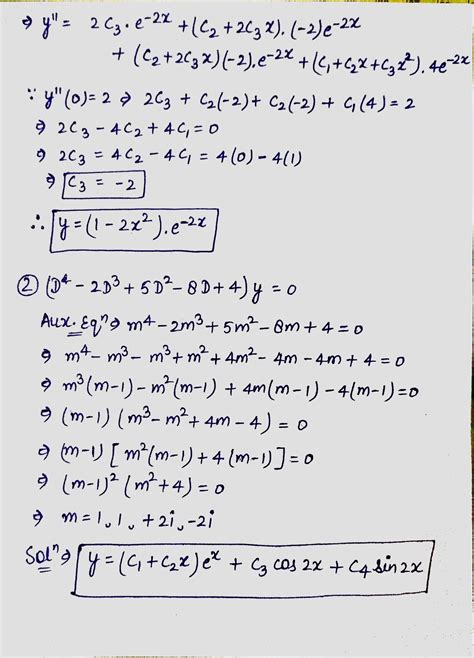 ⇒ y'' = 2C₃·e^{-2x} + (C₂ + 2C₃x).(-2)e^{-2x}
+ (C₂ + 2C₃x)(-2).e^{-2x} + (C₁ + C₂x + C₃x²).4e^{-2x}
∵ y''(0) = 2 ⇒ 2C₃ + C₂(-2) + C₂(-2) + C₁(4) = 2
⇒ 2C₃ - 4C₂ + 4C₁ = 0
⇒ 2C₃ = 4C₂ - 4C₁ = 4(0) - 4(1)
⇒ C₃ = -2
∴ y = (1 - 2x²).e^{-2x}
② (D⁴ - 2D³ + 5D² - 8D + 4) y = 0
Aux. Eqⁿ ⇒ m⁴ - 2m³ + 5m² - 8m + 4 = 0
⇒ m⁴ - m³ - m³ + m² + 4m² - 4m - 4m + 4 = 0
⇒ m³(m-1) - m²(m-1) + 4m(m-1) - 4(m-1) = 0
⇒ (m-1) (m³ - m² + 4m - 4) = 0
⇒ (m-1) [m²(m-1) + 4(m-1)] = 0
⇒ (m-1)² (m² + 4) = 0
⇒ m = 1, 1, +2i, -2i
Solⁿ ⇒ y = (C₁ + C₂x)eˣ + C₃ cos 2x + C₄ sin 2x